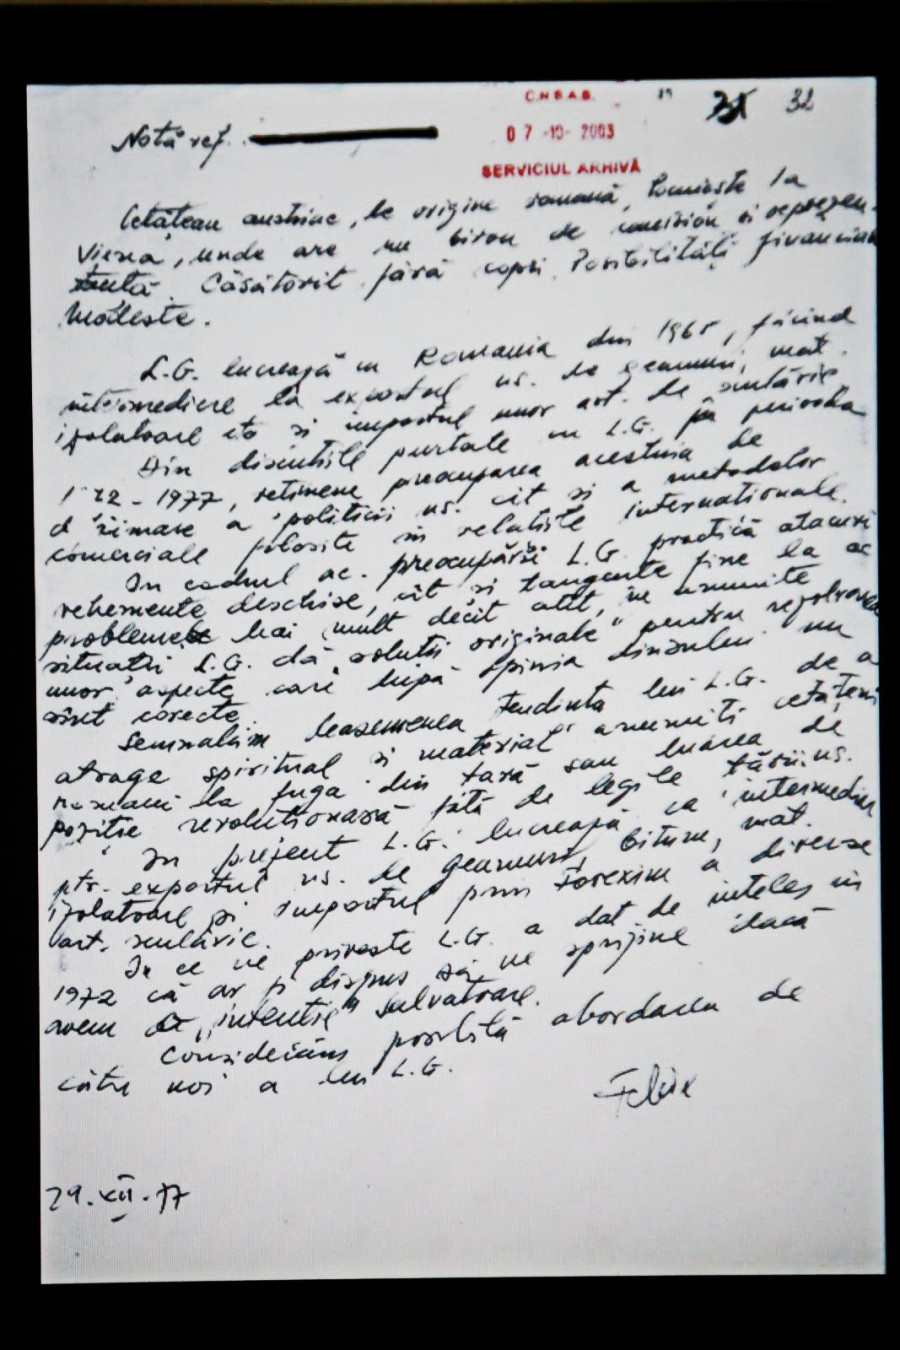 C.N.S.A.S.
32
Notă ref.
07 -10- 2003
SERVICIUL ARHIVĂ
Cetătean austriac, de origine română, locuieste la
Viena, unde are un birou de comision si reprezen-
tantă. Căsătorit fără copii. Posibilităţi financiare
modeste.
L.G. lucrează în Romania din 1965, făcînd
intermediere la exportul ns. de geamuri, mat.
izolatoare etc si importul unor art. de
Din discutiile purtate cu L.G. în perioada
1972-1977, retinem preocuparea acestuia de
a politicii ns. cît si a metodelor
comerciale folosite în relatiile internationale.
In cadrul ac. preocupări L.G. practică atacuri
vehemente deschise, cît si tangente fine la ac
probleme. Mai mult decît atît, in anumite
situatii L.G. dă „solutii originale" pentru rezolvarea
unor aspecte care după opinia dînsului nu
sînt corecte.
Semnalăm deasemenea tendinta lui L.G. de a
atrage spiritual si material anumiti cetăţeni
romani la fuga din tară sau luarea de
pozitie revolutionară fată de legile tării ns.
In prezent L.G. lucrează ca intermediar
ptr. exportul ns. de geamuri, bitum, mat.
izolatoare si importul prin Forexim a diverse
art.
In ce ne priveste L.G. a dat de inteles in
1972 că ar fi dispus să ne sprijine dacă
avem „intentii" salvatoare.
Considerăm posibilă abordarea de
către noi a lui L.G.
Felix
29.XII.77